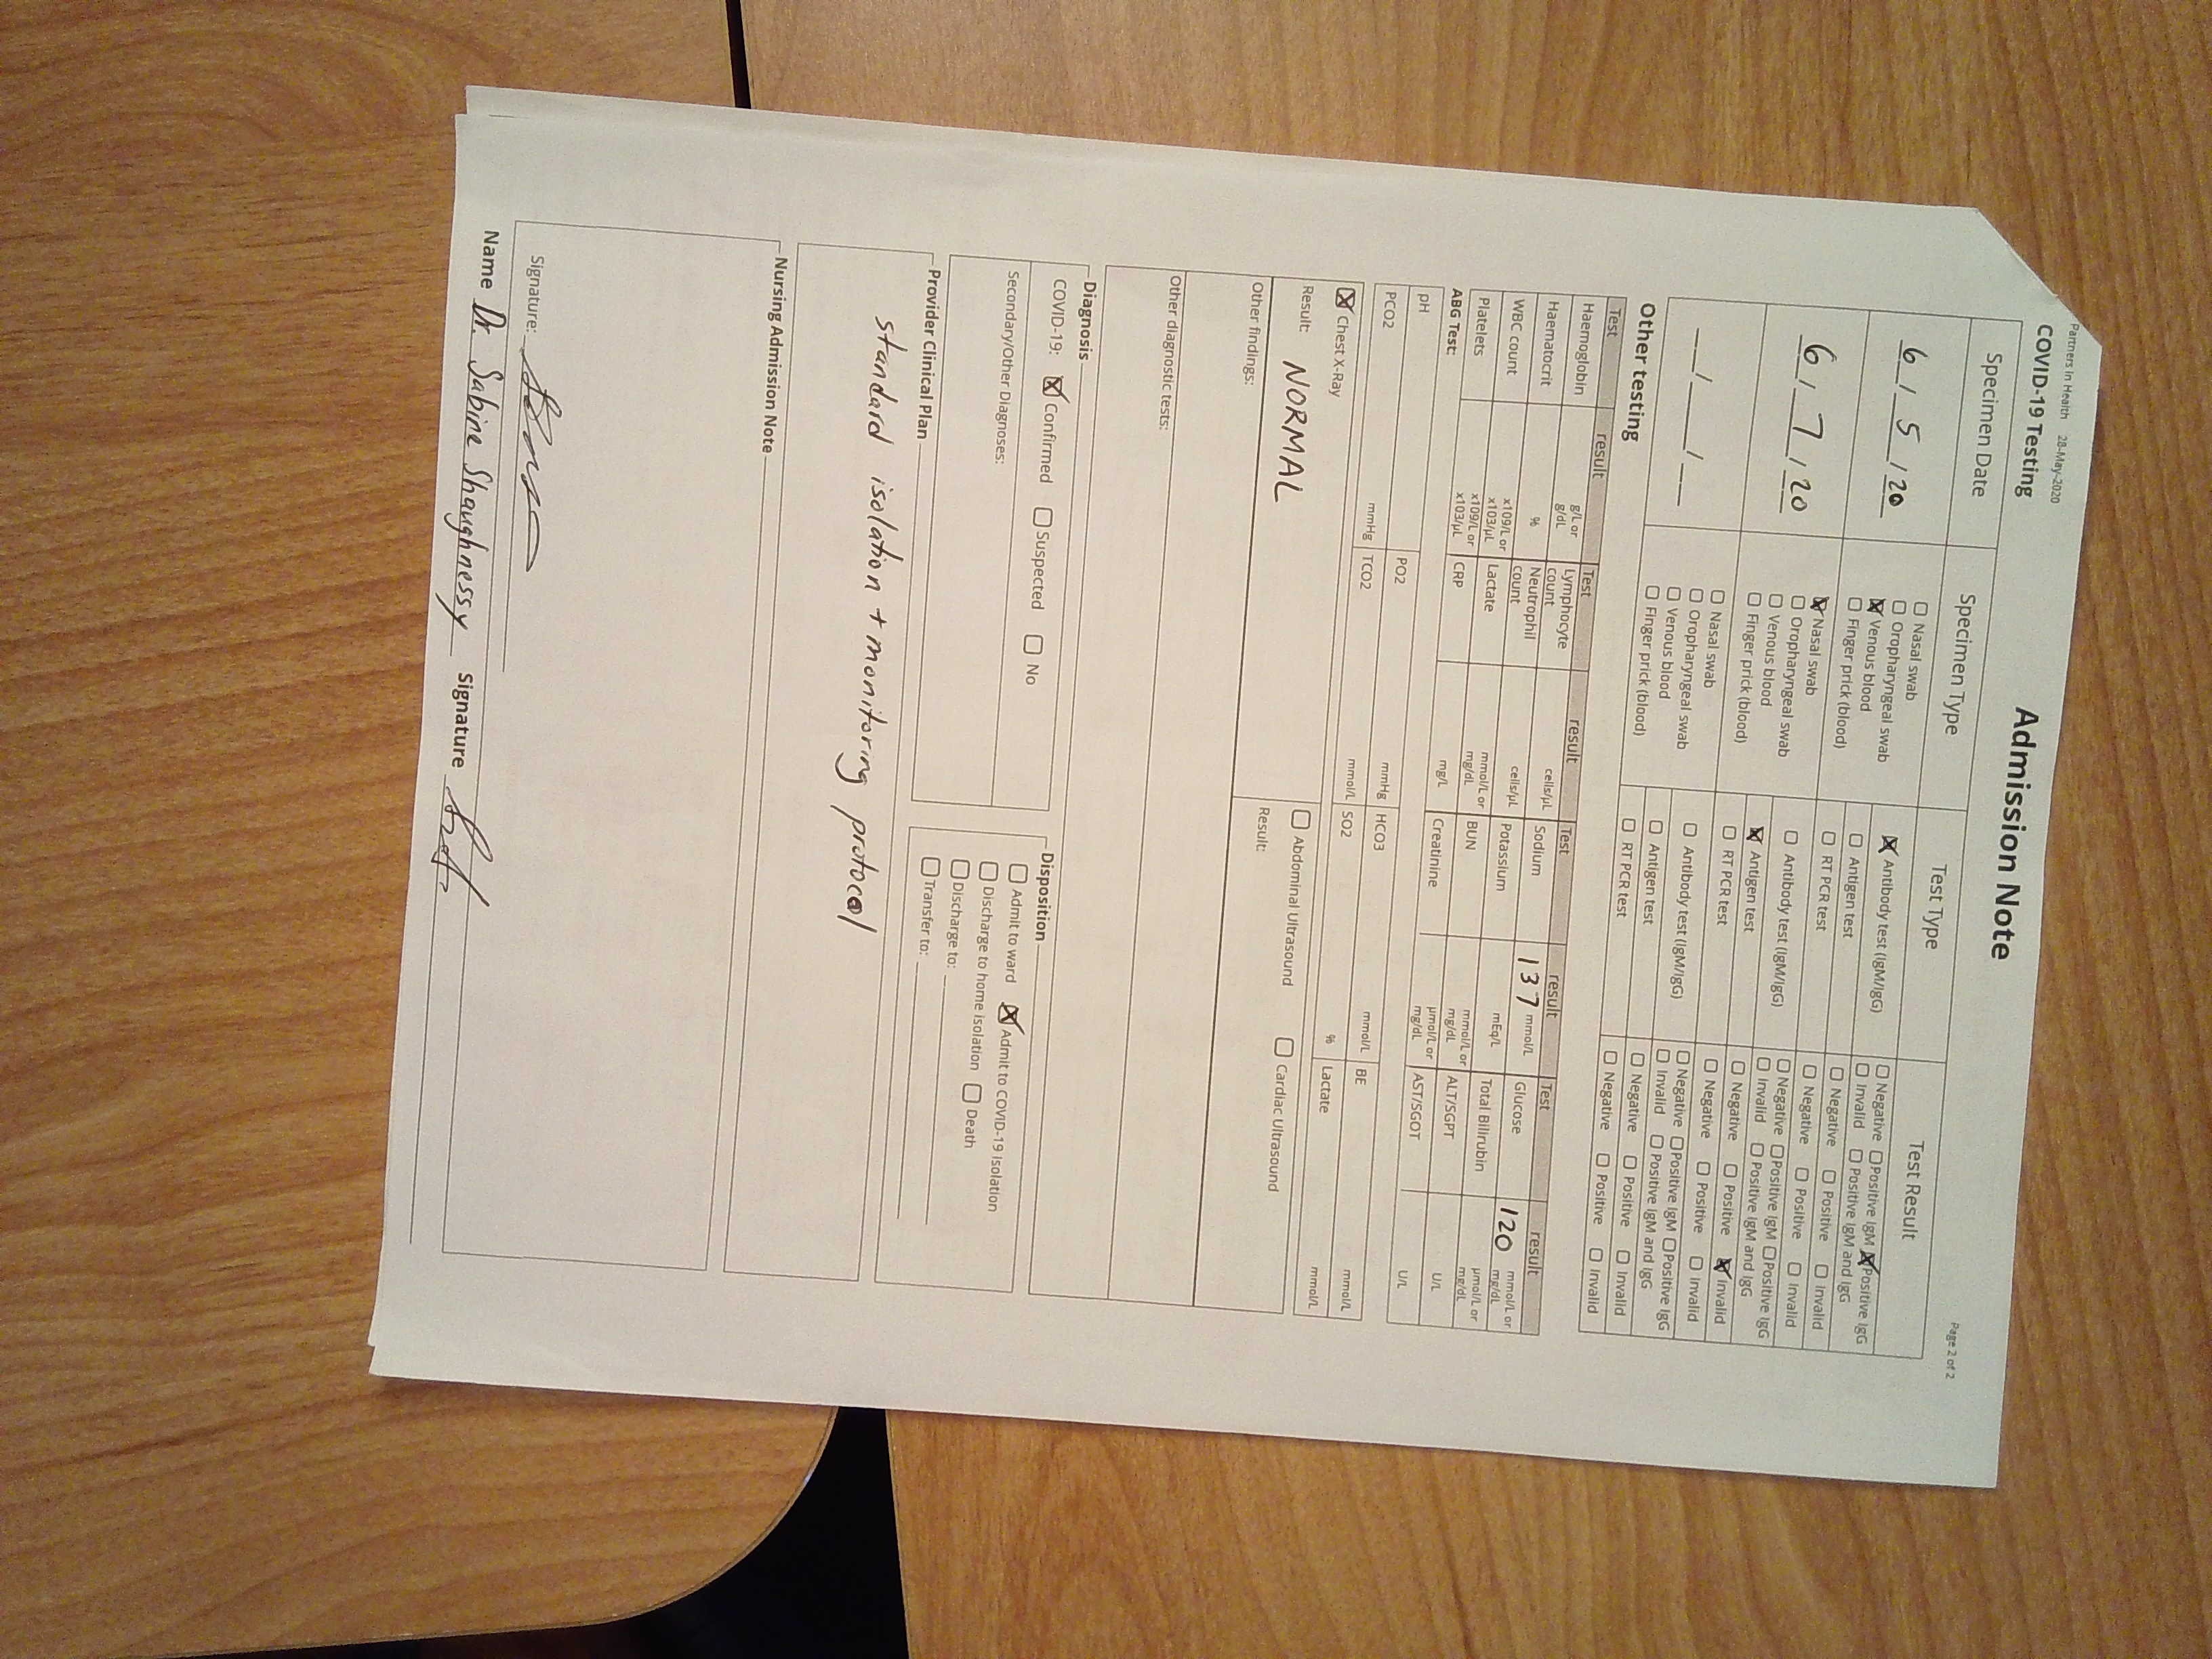 Partners In Health 28-May-2020
Page 2 of 2
Admission Note
COVID-19 Testing
Specimen Date Specimen Type Test Type Test Result
6 / 5 / 20
☐ Nasal swab
☐ Oropharyngeal swab
☒ Venous blood
☐ Finger prick (blood)
☒ Antibody test (IgM/IgG) ☐ Negative ☐ Positive IgM ☒ Positive IgG
☐ Invalid ☐ Positive IgM and IgG
☐ Antigen test ☐ Negative ☐ Positive ☐ Invalid
☐ RT PCR test ☐ Negative ☐ Positive ☐ Invalid
6 / 7 / 20
☒ Nasal swab
☐ Oropharyngeal swab
☐ Venous blood
☐ Finger prick (blood)
☐ Antibody test (IgM/IgG) ☐ Negative ☐ Positive IgM ☐ Positive IgG
☐ Invalid ☐ Positive IgM and IgG
☒ Antigen test ☐ Negative ☐ Positive ☒ Invalid
☐ RT PCR test ☐ Negative ☐ Positive ☐ Invalid
__/__/__
☐ Nasal swab
☐ Oropharyngeal swab
☐ Venous blood
☐ Finger prick (blood)
☐ Antibody test (IgM/IgG) ☐ Negative ☐ Positive IgM ☐ Positive IgG
☐ Invalid ☐ Positive IgM and IgG
☐ Antigen test ☐ Negative ☐ Positive ☐ Invalid
☐ RT PCR test ☐ Negative ☐ Positive ☐ Invalid
Other testing
Test result Test result Test result Test result
Haemoglobin g/L or g/dL Lymphocyte count cells/µL Sodium 137 mmol/L Glucose 120 mmol/L or mg/dL
Haematocrit % Neutrophil count cells/µL Potassium mEq/L Total Bilirubin µmol/L or mg/dL
WBC count x109/L or x103/µL Lactate mmol/L or mg/dL BUN mmol/L or mg/dL ALT/SGPT U/L
Platelets x109/L or x103/µL CRP mg/L Creatinine µmol/L or mg/dL AST/SGOT U/L
ABG Test:
pH PO2 mmHg HCO3 mmol/L BE mmol/L
PCO2 mmHg TCO2 mmol/L SO2 % Lactate mmol/L
☒ Chest X-Ray ☐ Abdominal Ultrasound ☐ Cardiac Ultrasound
Result: NORMAL Result:
Other findings:
Other diagnostic tests:
Diagnosis
COVID-19: ☒ Confirmed ☐ Suspected ☐ No
Secondary/Other Diagnoses:
Disposition
☐ Admit to ward ☒ Admit to COVID-19 Isolation
☐ Discharge to home isolation ☐ Death
☐ Discharge to:
☐ Transfer to:
Provider Clinical Plan
standard isolation + monitoring protocol
Nursing Admission Note
Signature:
Name Dr. Sabine Shaughnessy Signature